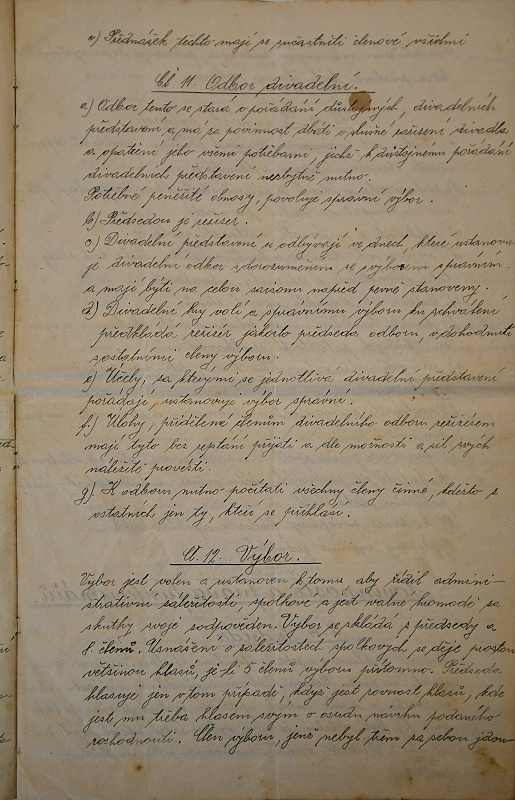 e) Přednášek těchto mají se súčastniti členové všichni
Čl. 11. Odbor divadelní.
a.) Odbor tento se stará o pořádání důstojných divadelních
představení a má za povinnost dbáti o slušné zařízení divadla
a opatření jeho všemi potřebami, jichž k důstojnému pořádání
divadelních představení nezbytně nutno.
Potřebné peněžité obnosy, povoluje správní výbor.
b.) Předsedou je režisér.
c.) Divadelní představení se odbývají ve dnech, které ustanoví
je divadelní odbor s dorozuměním se s výborem správním.
a mají býti na celou saisonu napřed pevně stanoveny.
d.) Divadelní hry volí a správnímu výboru ku schválení
předkládá režisér jakožto předseda odboru, v dohodnutí
s ostatními členy výboru.
e) Účely, za kterými se jednotlivá divadelní představení
pořádají, ustanovuje výbor správní.
f.) Úlohy, přidělené členům divadelního odboru režisérem
mají tyto bez reptání přijati a dle možnosti a sil svých
náležitě provésti.
g). K odboru nutno počítati všechny členy činné, kdežto z
ostatních jen ty, kteří se přihlásí.
Čl. 12. Výbor.
Výbor jest volen a ustanoven k tomu, aby řídil admini-
strativní záležitosti spolkové a jest valné hromadě za
skutky svoje zodpověden. Výbor se skládá z předsedy a
8. členů. Usnášení o záležitostech spolkových se děje prostou
většinou hlasů, je-li 5 členů výboru přítomno. Předseda
hlasuje jen v tom případě, když jest rovnost hlasů, kde
jest mu třeba hlasem svým o osudu návrhu podaného
rozhodnouti. Člen výboru, jenž nebyl třem za sebou jdou-